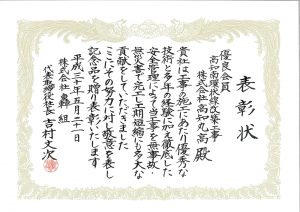 表彰状
優良会員
高知南環状線改築工事
株式会社 高知丸高 殿
貴社は工事の施工にあたり優秀な
技術と多年の経験に加え徹底した
安全管理によって当工事を無事故・
無災害で完工し工期短縮にも多大な
貢献をしていただきました
ここにその努力に対し敬意を表し
記念品を贈り表彰いたします
平成三十年五月二十一日
株式会社 轟組
代表取締役社長 吉村文次